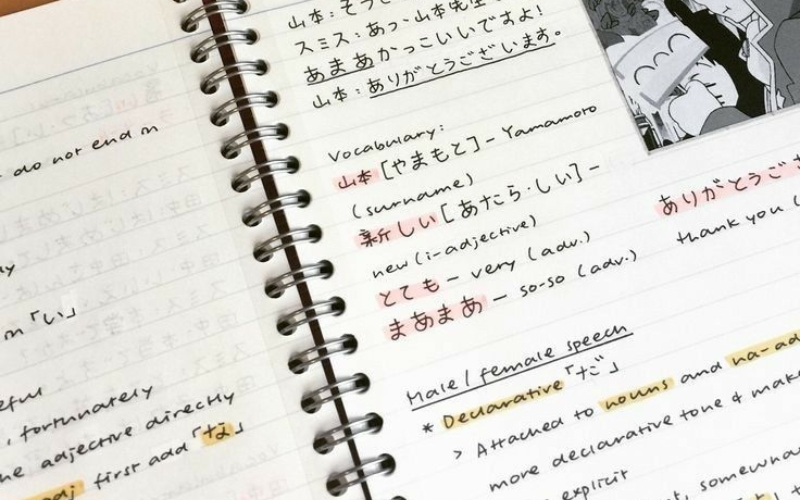 do not end in
「い」
, fortunately
adjective directly
adj first add「な」
山本：そう
スミス：あっ、山本先生
あまあかっこいいですよ！
山本：ありがとうございます。
Vocabulary:
山本[やまもと]- Yamamoto
(surname)
新しい[あたら・しい]-
new (i-adjective)
とても - very (adv.)
まあまあ - so-so (adv.)
ありがとうご
thank you (
Male / female speech
* Declarative「だ」
> Attached to nouns and na-ad
more declarative tone & make
explicit